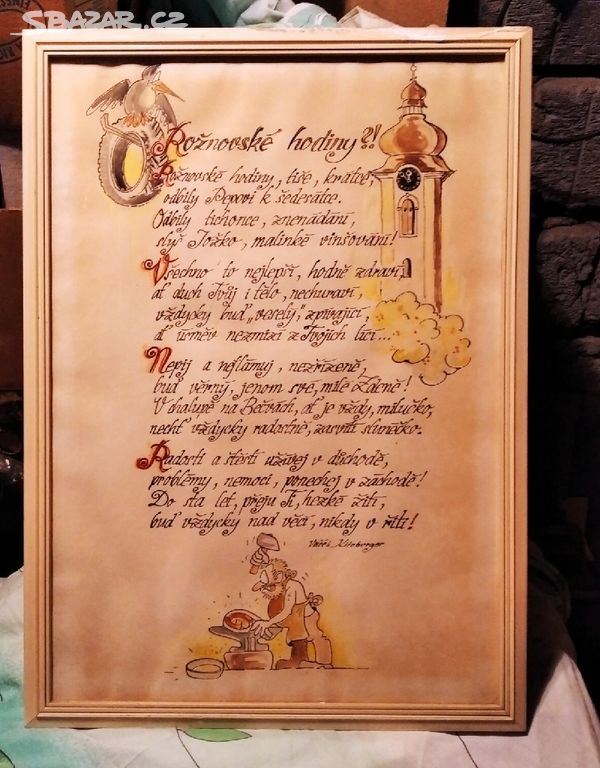 SBAZAR.CZ
Rožnovské hodiny?!
Rožnovské hodiny, tiše, krátce,
odbily Pepovi k šederátce.
Odbily tichonce, znenádání,
slyš Jožko, malinké vinšování!
Všechno to nejlepší, hodně zdraví,
ať duch Tvůj i tělo, nechuraví,
vždycky buď „veselý,“ zpívající,
ať úsměv nezmizí z Tvojich lící...
Nepij a neflámuj, nezřízeně,
buď věrný, jenom své, milé Zdeně!
V chalupě na Bečvách, ať je vždy, milučko,
nechť vždycky radostně, zasvítí slunéčko.
Radosti a štěstí užívej v důchodě,
problémy, nemoci, ponechej v záchodě!
Do sta let, přeju Ti, hezké žití,
buď vždycky nad věcí, nikdy v řiti!